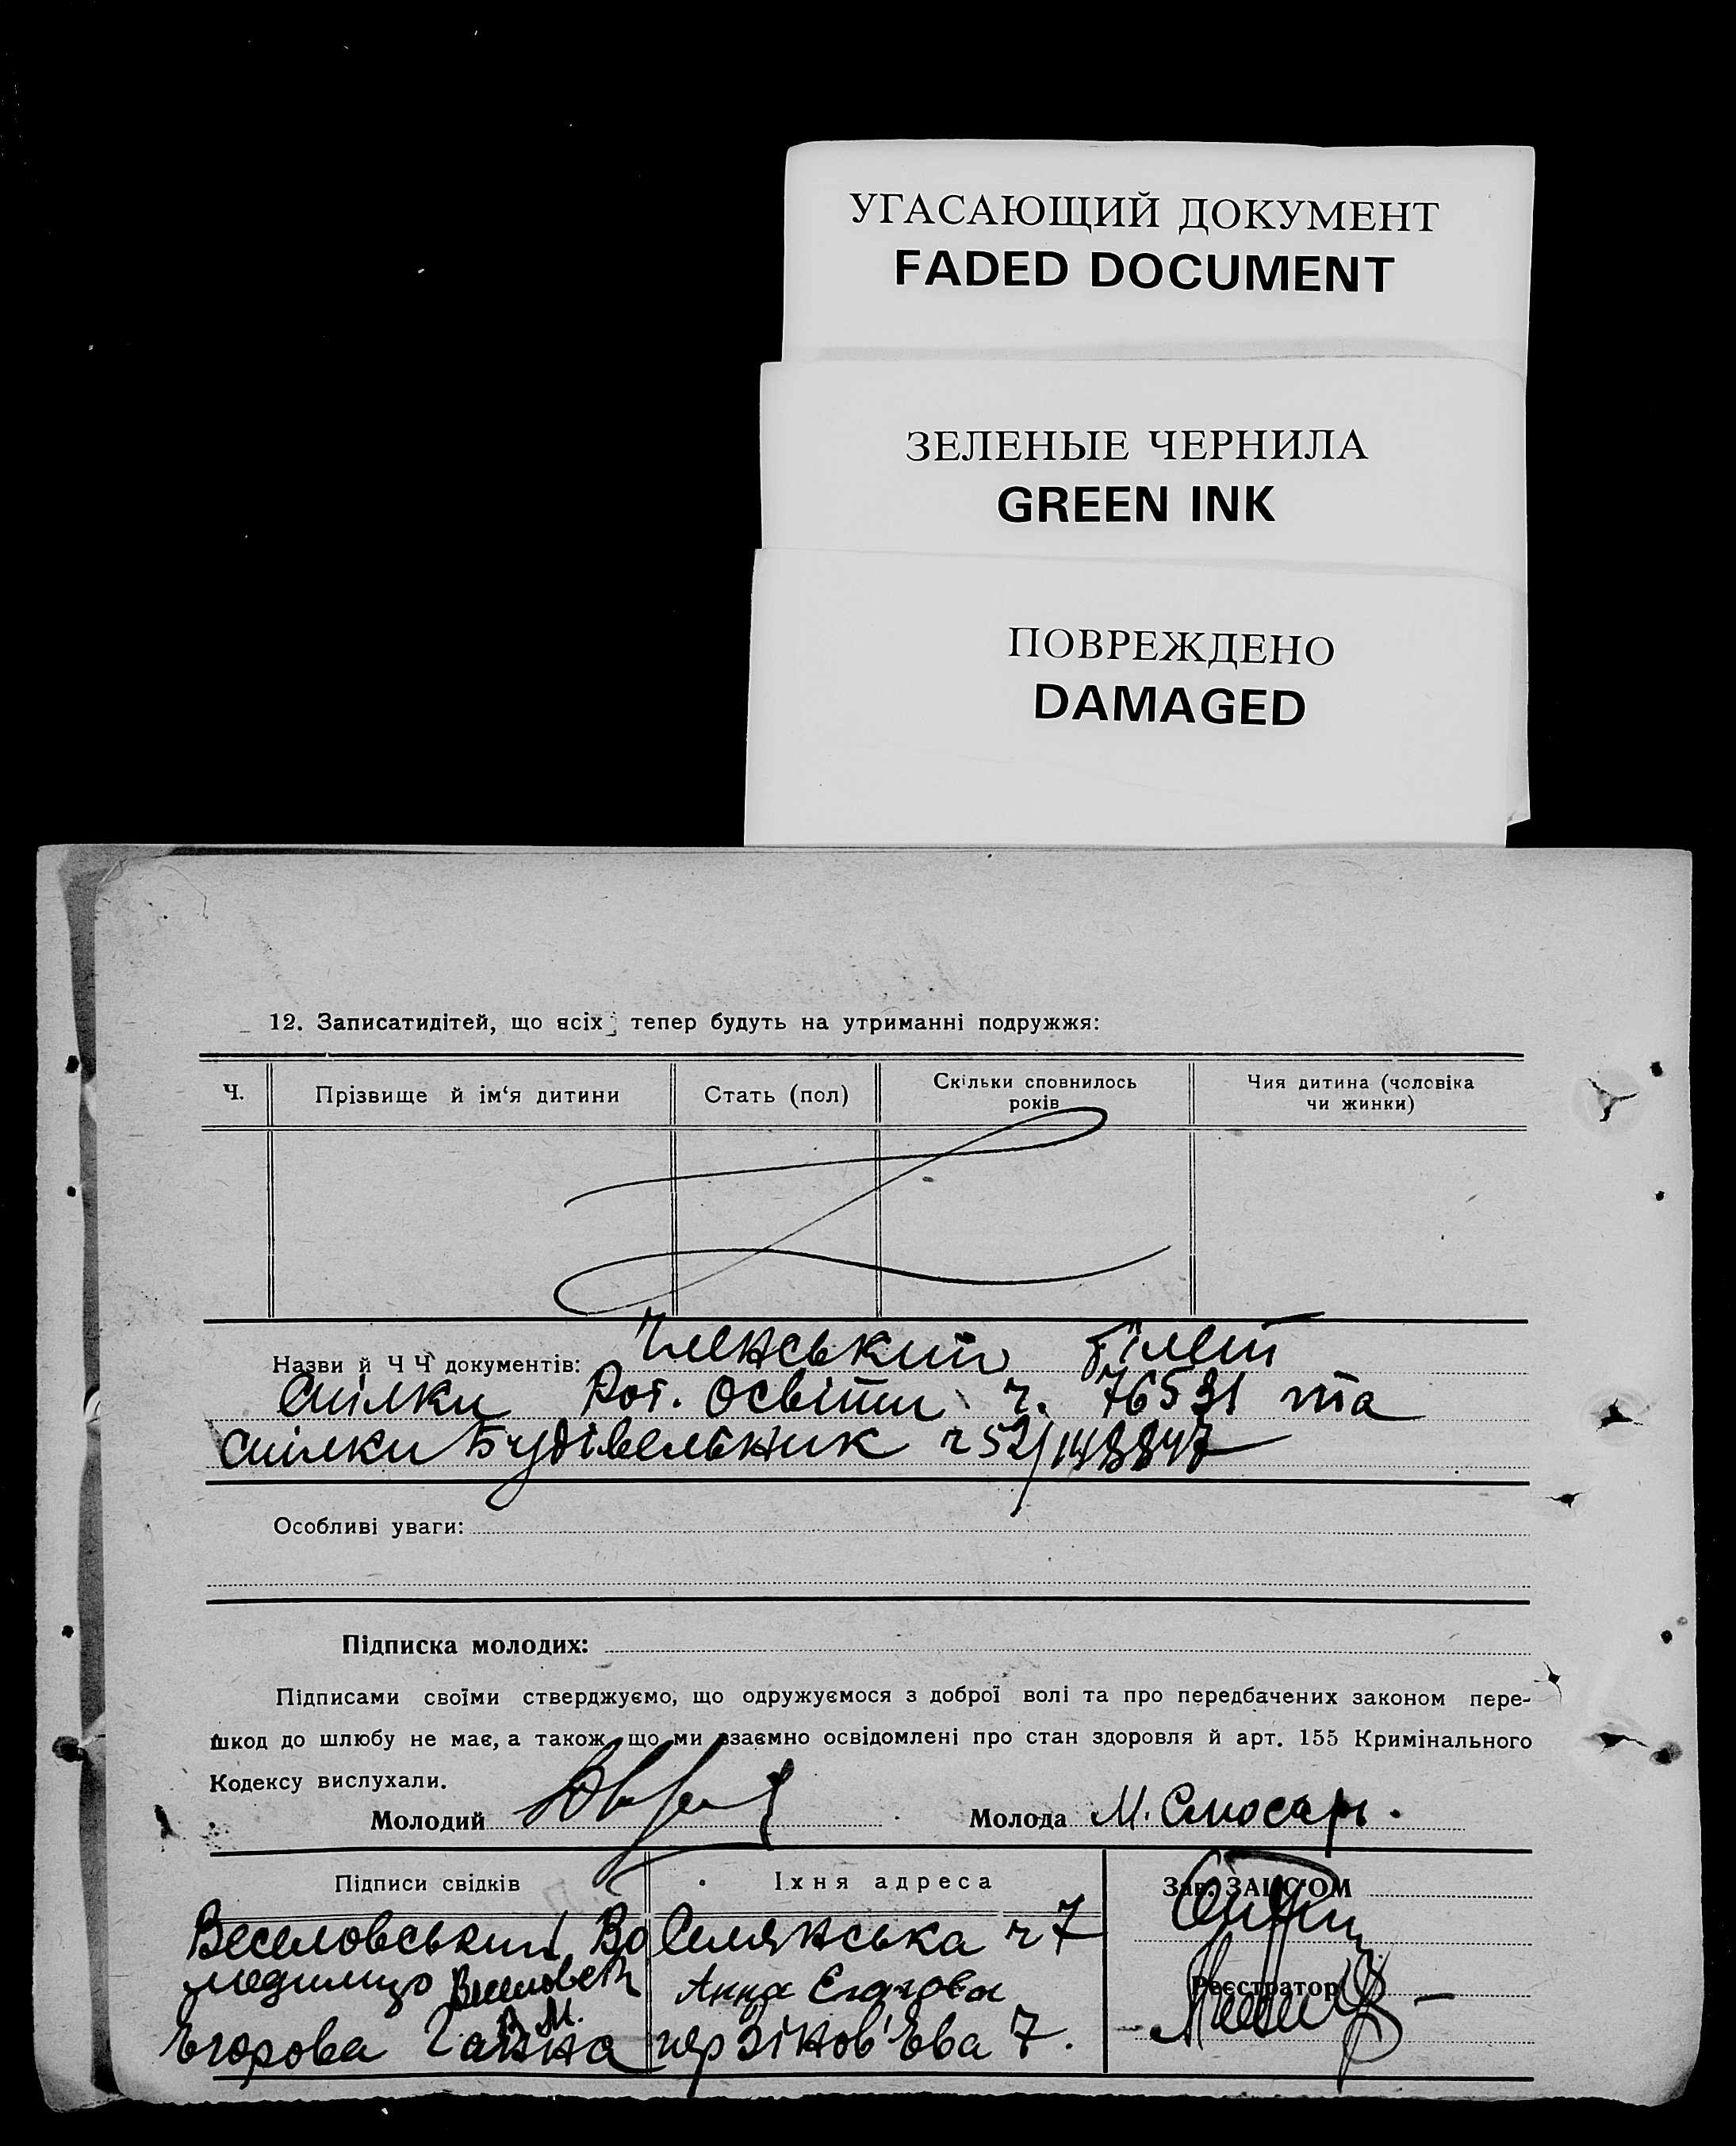 УГАСАЮЩИЙ ДОКУМЕНТ
FADED DOCUMENT
ЗЕЛЕНЫЕ ЧЕРНИЛА
GREEN INK
ПОВРЕЖДЕНО
DAMAGED
12. Записатидітей, що всіх тепер будуть на утриманні подружжя:
Ч. Прізвище й ім‘я дитини Стать (пол) Скільки сповнилось років Чия дитина (чоловіка чи жинки)
Назви й Ч Ч документів: Членський білет
Спілки Роб. Освіти ч. 76531 та
Спілки Будівельник ч 52/
Особливі уваги:
Підписка молодих:
Підписами своїми стверджуємо, що одружуємося з доброї волі та про передбачених законом пере-
шкод до шлюбу не має, а також що ми взаємно освідомлені про стан здоровля й арт. 155 Кримінального
Кодексу вислухали.
Молодий Молода М. Слюсарь.
Підписи свідків Їхня адреса Зав. ЗАГС'ОМ
Веселовський Во Селянська ч 7
Анна Егорова Реєстратор
Єгорова Ганна пер Зінов'Єва 7.